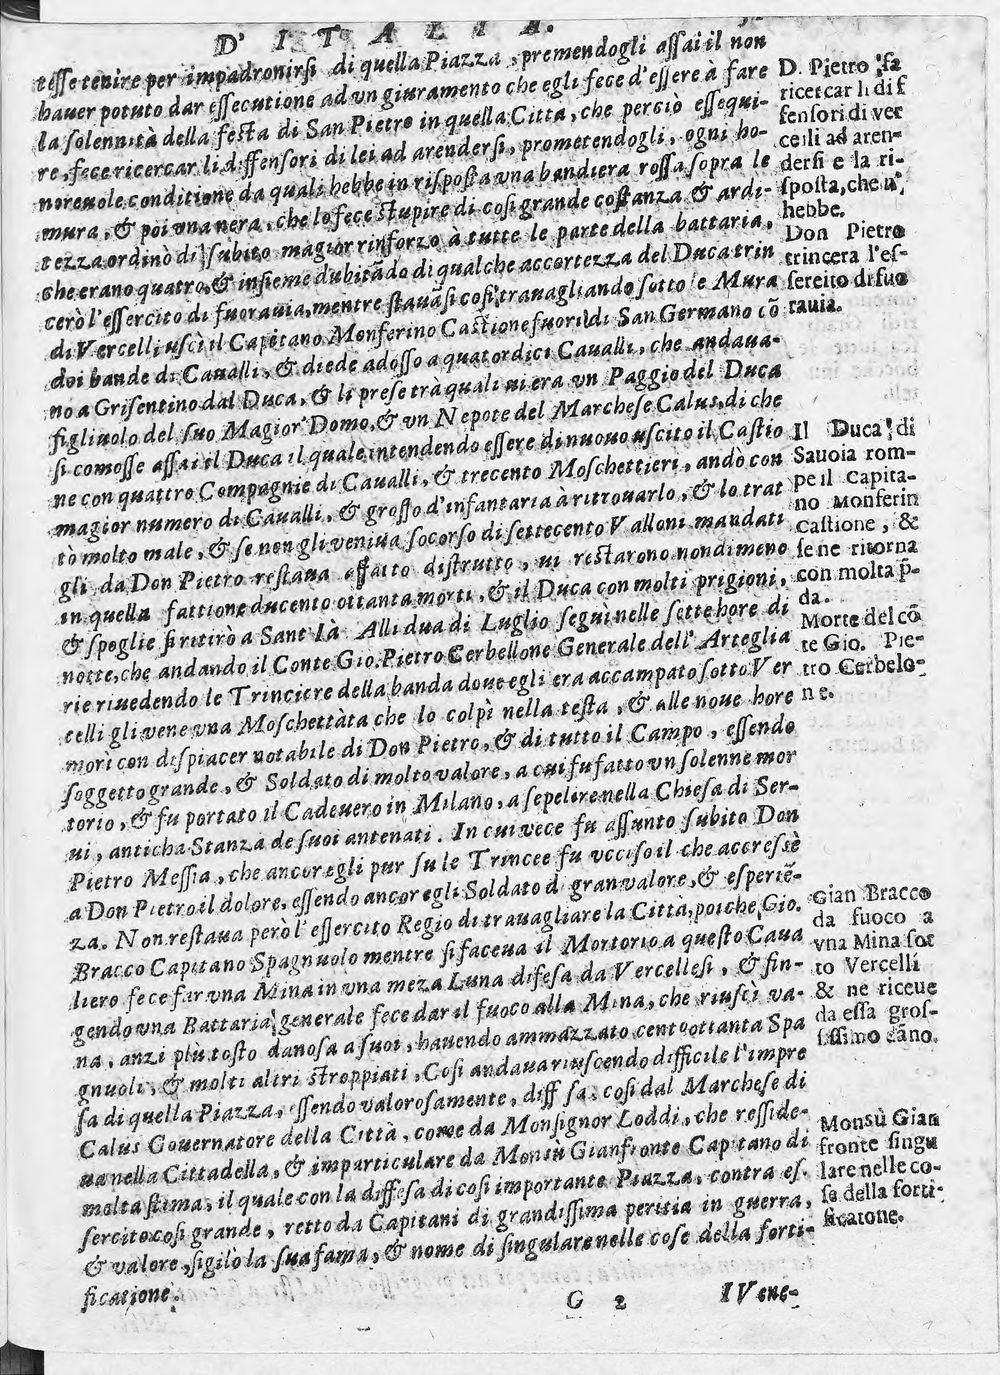 D' ITALIA.
tesse tenire per impadronirsi di quella Piazza, premendogli assai il non
hauer potuto dar essecutione ad vn giuramento che egli fece d'essere à fare
la solennità della festa di San Pietro in quella Città, che perciò essequi-
re, fece ricercar li diffensori di lei ad arendersi, prometendogli, ogni ho-
noreuole conditione da quali hebbe in risposta vna bandiera rossa sopra le
mura, & poi vna nera, che lo fece stupire di così grande costanza & ardi-
tezza ordinò di subito magior rinforzo à tutte le parte della battaria,
che erano quatro, & insieme dubitãdo di qualche accortezza del Duca trin
cerò l'essercito di fuorauia, mentre stauãsi così trauagliando sotto le Mura
di Vercelli uscì il Capitano Monferino Castione fuori di San Germano cõ
doi bande di Caualli, & diede adosso a quatordici Caualli, che andaua-
no a Grisentino dal Duca, & li prese trà quali ui era un Paggio del Duca
figliuolo del suo Magior Domo, & un Nepote del Marchese Calus, di che
si comosse assai il Duca il quale intendendo essere di nuouo uscito il Castio
ne con quattro Compagnie di Caualli, & trecento Moschettieri, andò con
magior numero di Caualli, & grosso d'infantaria a ritrouarlo, & lo trat
tò molto male, & se non gli veniua socorso di settecento Valloni mandati
gli da Don Pietro restaua affatto distrutto, ui restarono nondimeno
in quella fattione ducento ottanta morti, & il Duca con molti prigioni,
& spoglie si ritirò a Sant Ià. Alli dua di Luglio seguì nelle sette hore di
notte, che andando il Conte Gio. Pietro Cerbellone Generale dell' Arteglia
rie riuedendo le Trinciere della banda doue egli era accampato sotto Ver
celli gli vene vna Moschettàta che lo colpì nella testa, & alle noue hore
morì con dispiacer notabile di Don Pietro, & di tutto il Campo, essendo
soggetto grande, & Soldato di molto valore, a cui fu fatto vn solenne mor
torio, & fu portato il Cadeuero in Milano, a sepelire nella Chiesa di Ser-
ui, anticha Stanza de suoi antenati. In cui vece fu assunto subito Don
Pietro Messia, che ancor egli pur su le Trincee fu vcciso il che accressè
a Don Pietro il dolore, essendo ancor egli Soldato di gran valore, & esperiẽ-
za. Non restaua però l'essercito Regio di trauagliare la Città, poiche Gio.
Bracco Capitano Spagnuolo mentre si faceua il Mortorio a questo Caua
liero fece far vna Mina in vna meza Luna difesa da Vercellesi, & fin-
gendo vna Battaria generale fece dar il fuoco alla Mina, che riuscì va-
na, anzi più tosto danosa a suoi, hauendo ammazzato cento ottanta Spa
gnuoli, & molti altri stroppiati, Cosi andaua riuscendo difficile l'impre
sa di quella Piazza, essendo valorosamente, diffesa, cosi dal Marchese di
Calus Gouernatore della Città, come da Monsignor Loddi, che resside-
ua nella Cittadella, & imparticulare da Monsù Gianfronte Capitano di
molta stima, il quale con la diffesa di cosi importante Piazza, contra es-
sercito cosi grande, retto da Capitani di grandissima peritia in guerra,
& valore, sigilò la sua fama, & nome di singulare nelle cose della forti-
ficatione.
G 2
I Vene-
D. Pietro fa
ricercar li dif
fensori di ver
celli ad aren-
dersi e la ri-
sposta, che n'
hebbe.
Don Pietro
trincera l'es-
sercito di fuo
rauia.
Il Duca di
Sauoia rom-
pe il Capita-
no Monferin
castione, &
se ne ritorna
con molta p̃-
da.
Morte del cõ
te Gio. Pie-
tro Cerbelo-
ne.
Gian Bracco
da fuoco a
vna Mina sot
to Vercelli
& ne riceue
da essa gros-
sissimo dãno.
Monsù Gian
fronte singu
lare nelle co-
se della forti-
ficatone.